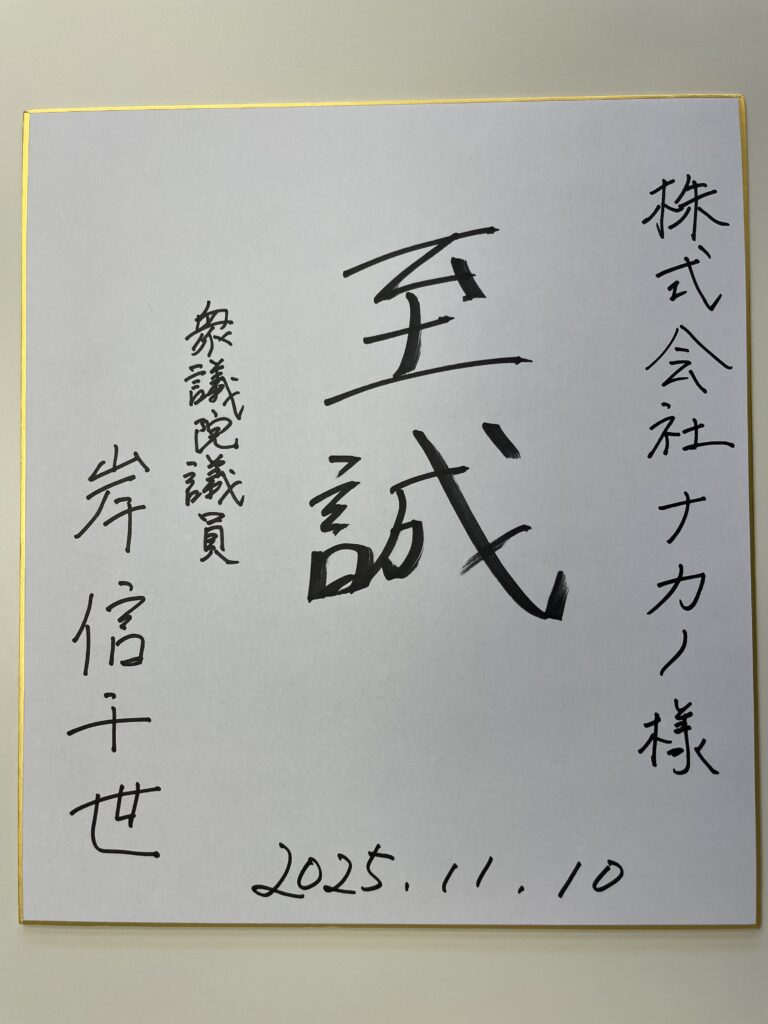 株式会社ナカノ様
至誠
衆議院議員
岸信千世
2025.11.10